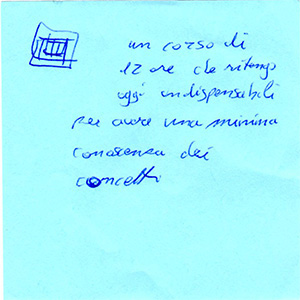 un corso di
12 ore che ritengo
oggi indispensabili
per avere una minima
conoscenza dei
concetti